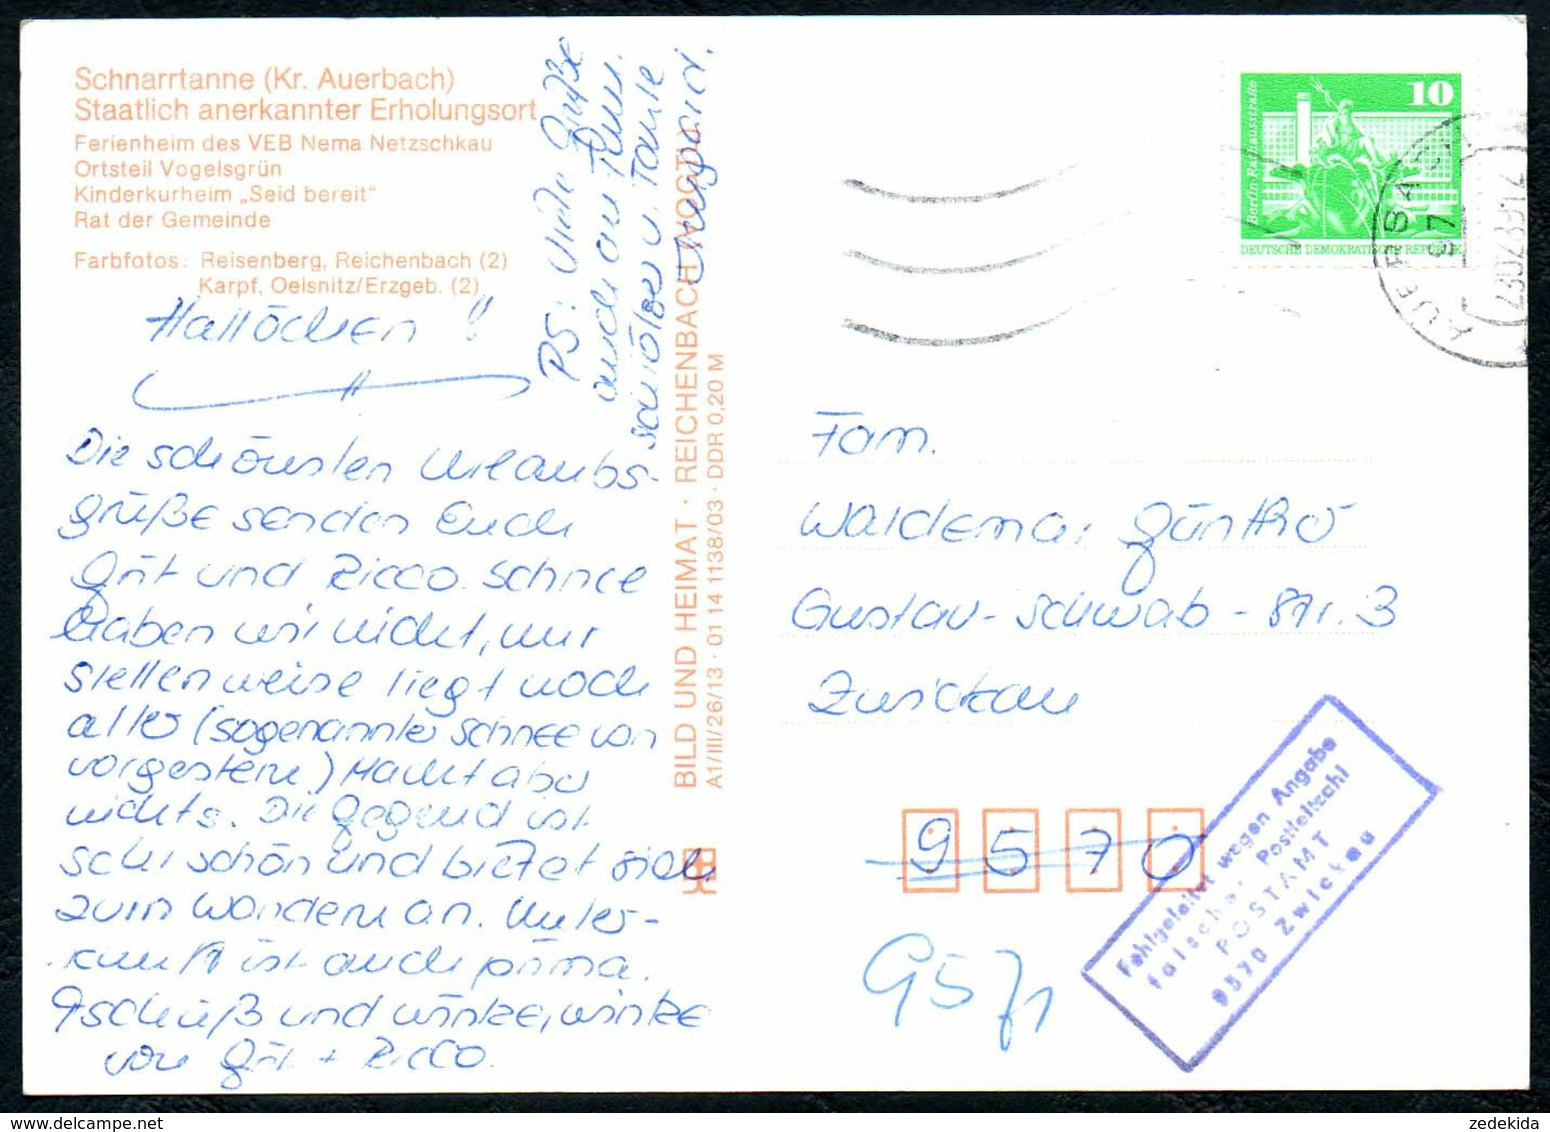 Schnarrtanne (Kr. Auerbach)
Staatlich anerkannter Erholungsort
Ferienheim des VEB Nema Netzschkau
Ortsteil Vogelsgrün
Kinderkurheim „Seid bereit“
Rat der Gemeinde
Farbfotos: Reisenberg, Reichenbach (2)
Karpf, Oelsnitz/Erzgeb. (2)
Hallöchen !
Die schönsten Urlaubs-
grüße senden Euch
Grit und Ricco. Schnee
haben wir nicht, nur
stellenweise liegt noch
alter (sogenannter Schnee von
vorgestern) Macht aber
nichts. Die Gegend ist
sehr schön und bietet sich
zum Wandern an. Unter-
kunft ist auch prima.
Tschüß und winke, winke
von Grit + Ricco.
PS: Viele Grüße
auch an Fam.
Schölber u. Tante
BILD UND HEIMAT · REICHENBACH (VOGTL)
A1/III/26/13 · 01 14 1138/03 · DDR 0,20 M
10
Berlin-Rathausstraße
DEUTSCHE DEMOKRATISCHE REPUBLIK
Fam.
Waldemar Günther
Gustav-Schwab-Str. 3
Zwickau
9570
9571
Fehlgeleitet wegen Angabe
falscher Postleitzahl
POSTAMT
9570 Zwickau
zedekida